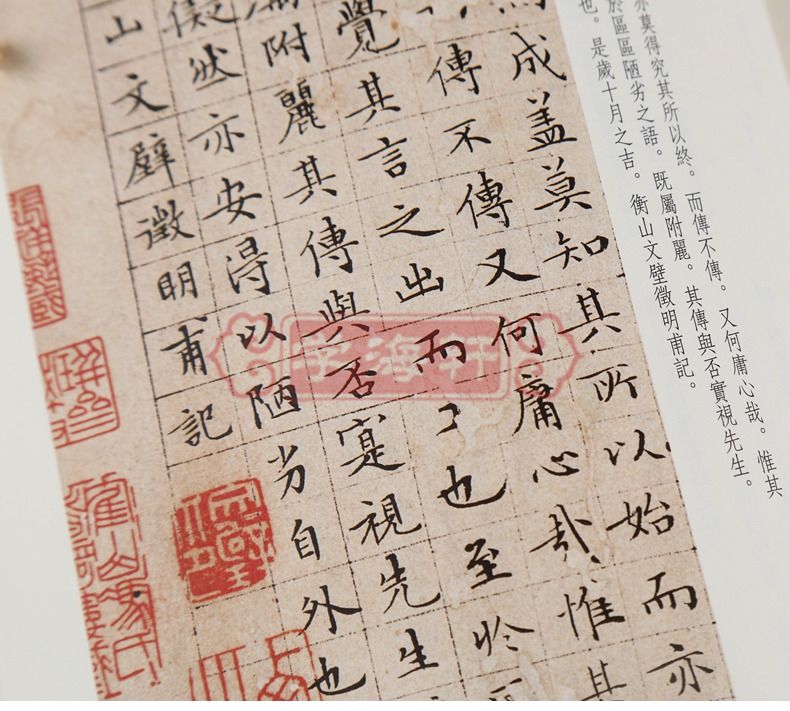 亦莫得究其所以終。而傳不傳。又何庸心哉。惟其
於區區陋劣之語。既屬附麗。其傳與否實視先生。
也。是歲十月之吉。衡山文壁徵明甫記。
成蓋莫知其所以始而亦
傳不傳又何庸心哉惟其
覺其言之出而也至於
附麗其傳與否寔視先生
儗然亦安得以陋劣自外也
山文壁徵明甫記
学海軒